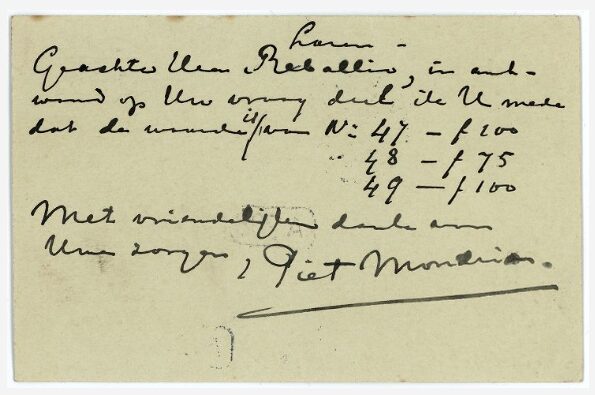 Laren –
Geachte Heer Reballio, in ant-
woord op Uw vraag deel ik U mede
dat de waarde is van No: 47 – f 100
48 – f 75
49 – f 100
Met vriendelijken dank voor
Uwe zorgen, Piet Mondrian.